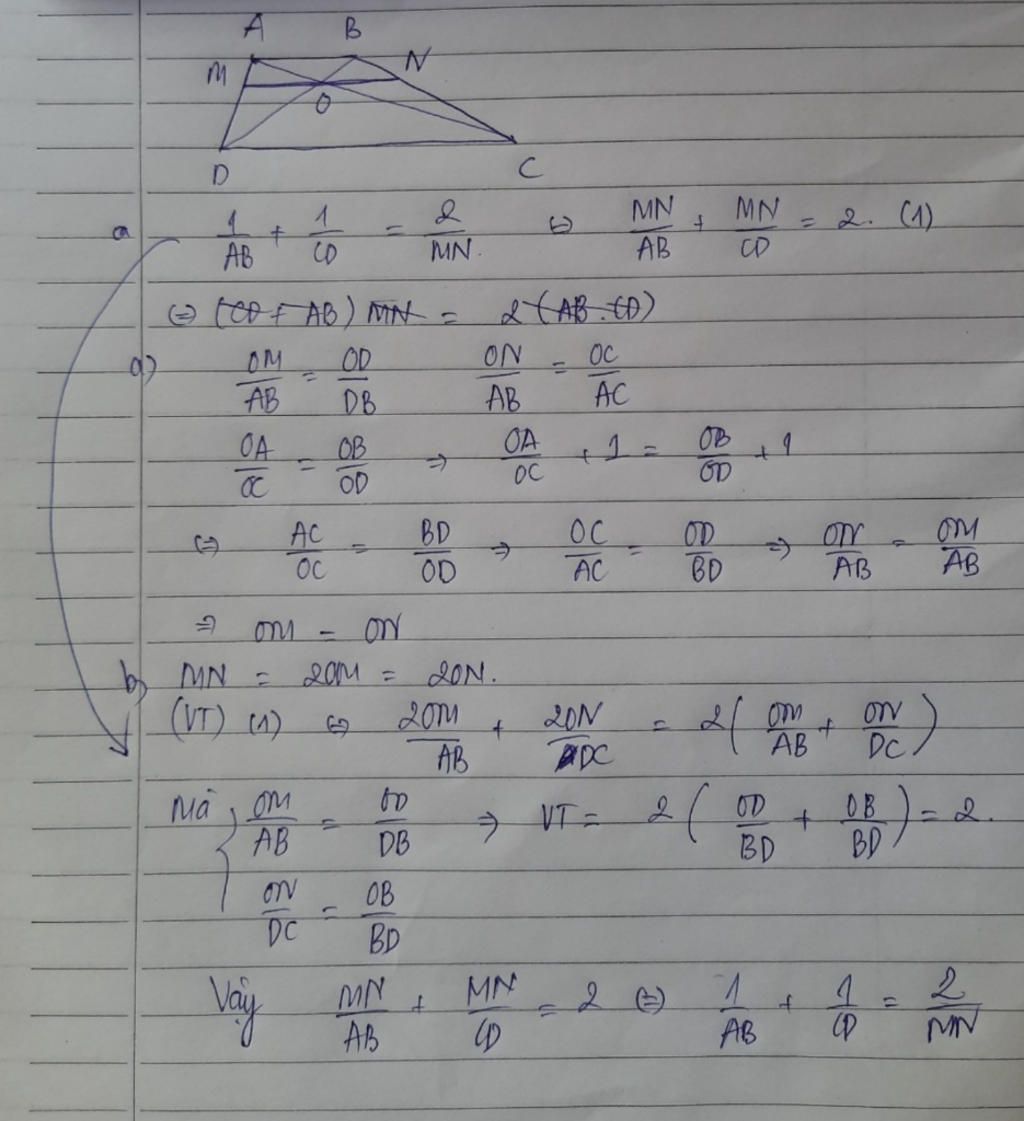 A B
M N
O
D C
a 1/AB + 1/CD = 2/MN. ⇔ MN/AB + MN/CD = 2. (1)
⇔ (CD + AB) MN = 2 (AB . CD)
a) OM/AB = OD/DB ON/AB = OC/AC
OA/OC = OB/OD ⇒ OA/OC + 1 = OB/OD + 1
⇔ AC/OC = BD/OD ⇒ OC/AC = OD/BD ⇒ ON/AB = OM/AB
⇒ OM = ON
b) MN = 2OM = 2ON.
(VT) (1) ⇔ 2OM/AB + 2ON/DC = 2(OM/AB + ON/DC)
Mà { OM/AB = OD/DB ⇒ VT = 2 (OD/BD + OB/BD) = 2.
ON/DC = OB/BD
Vậy MN/AB + MN/CD = 2 ⇔ 1/AB + 1/CD = 2/MN